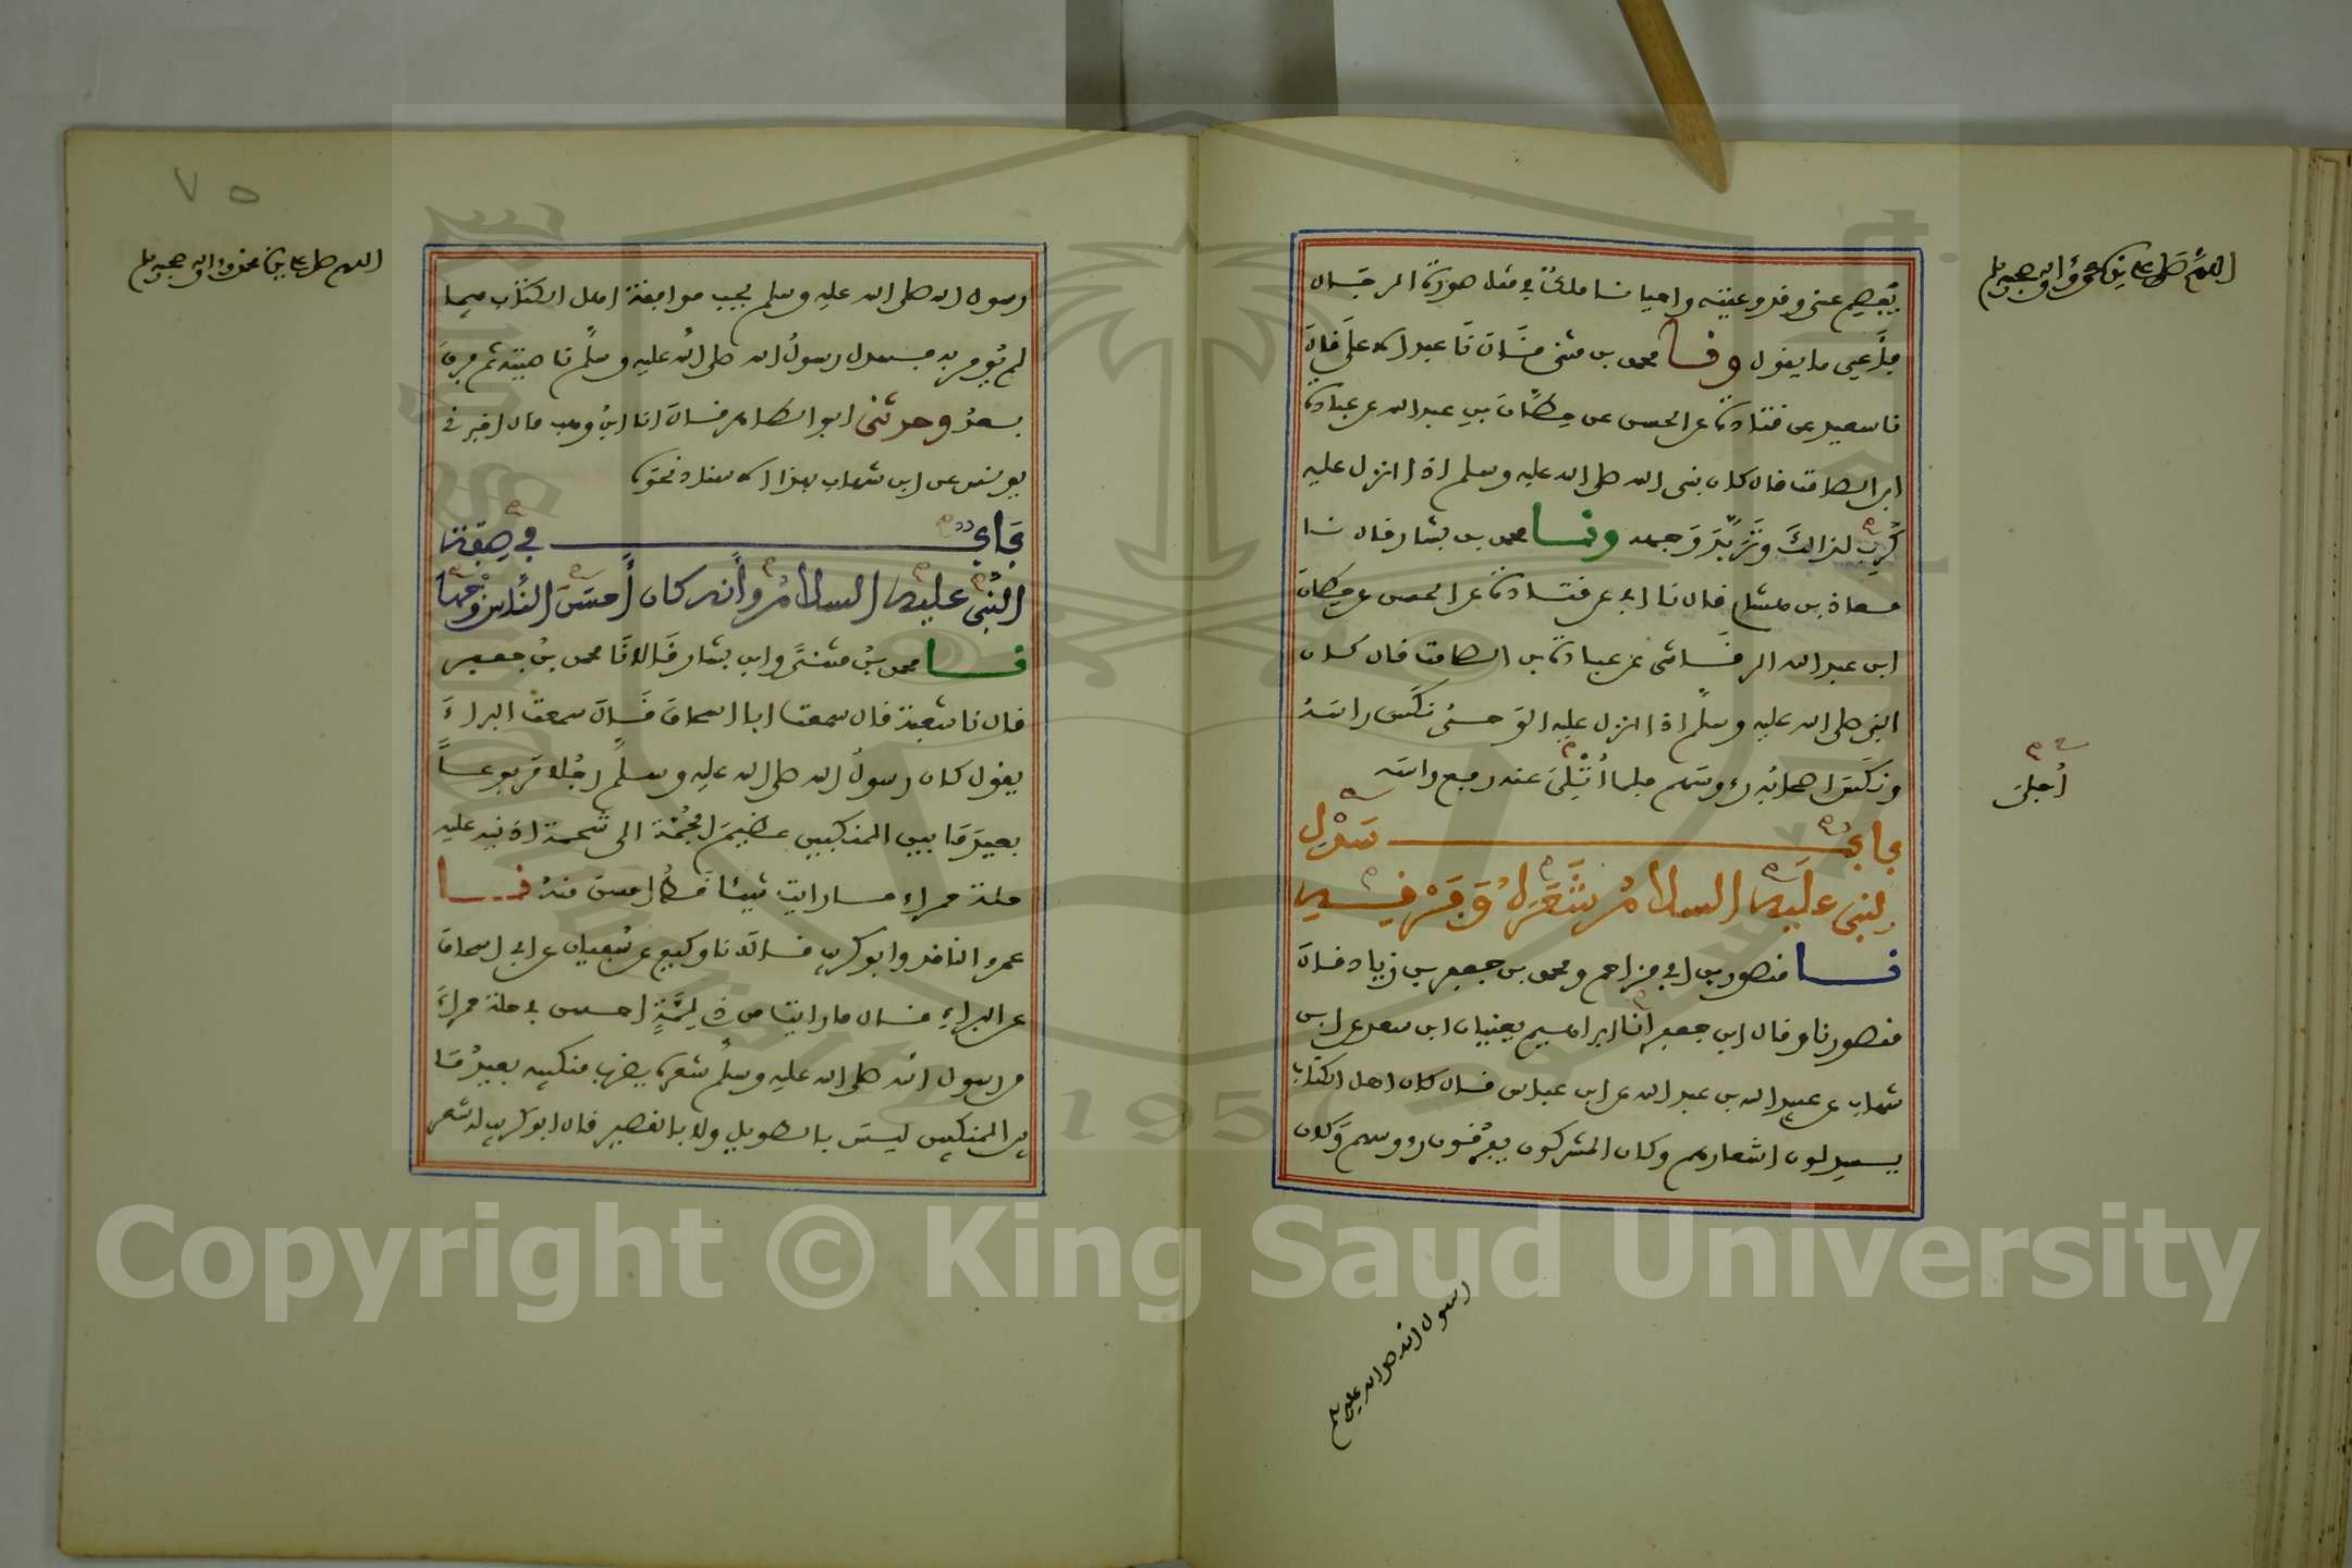 اللهم صل على سيدنا محمد وءاله وصحبه وسلم
يفصم عني وقد وعيته واحيانا ملك في مثل صورة الرجال
فأعي ما يقول ونا محمد بن مثنى قال نا عبد الاعلى قال
نا سعيد عن قتادة عن الحسن عن حطان بن عبد الله عن عبادة
ابن الصامت قال كان نبي الله صلى الله عليه وسلم اذا انزل عليه
كرب لذلك وتربد وجهه ونا محمد بن بشار قال نا
معاذ بن هشام قال نا ابي عن قتادة عن الحسن عن حطان
ابن عبد الله الرقاشي عن عبادة بن الصامت قال كان
النبي صلى الله عليه وسلم اذا انزل عليه الوحي نكس راسه
ونكس اصحابه رءوسهم فلما أتلي عنه رفع راسه
أجلي
باب سدل
النبي عليه السلام شعره وفرقه
نا منصور بن ابي مزاحم ومحمد بن جعفر بن زياد قال
منصور نا وقال ابن جعفر أنا ابراهيم يعنيان ابن سعد عن ابن
شهاب عن عبيد الله بن عبد الله عن ابن عباس قال كان اهل الكتاب
يسدلون اشعارهم وكان المشركون يفرقون رءوسهم وكان
رسول الله صلى الله عليه وسلم
٧٥
اللهم صل على سيدنا محمد وءاله وصحبه وسلم
رسول الله صلى الله عليه وسلم يحب موافقة اهل الكتاب فيما
لم يؤمر به فسدل رسول الله صلى الله عليه وسلم ناصيته ثم فرق
بعد وحدثني ابو الطاهر قال انا ابن وهب قال اخبرني
يونس عن ابن شهاب بهذا الاسناد نحوه
باب في صفة
النبي عليه السلام وأنه كان أحسن الناس وجها
نا محمد بن مثنى وابن بشار قالا نا محمد بن جعفر
قال نا شعبة قال سمعت ابا اسحاق قال سمعت البراء
يقول كان رسول الله صلى الله عليه وسلم رجلا مربوعا
بعيد ما بين المنكبين عظيم الجمة الى شحمة اذنيه عليه
حلة حمراء ما رايت شيئا قط احسن منه نا
عمرو الناقد وابو كريب قالا نا وكيع عن سفيان عن ابي اسحاق
عن البراء قال ما رايت من ذي لمة احسن في حلة حمراء
من رسول الله صلى الله عليه وسلم شعره يضرب منكبيه بعيد ما
بين المنكبين ليس بالطويل ولا بالقصير قال ابو كريب له شعر
Copyright © King Saud University
1957